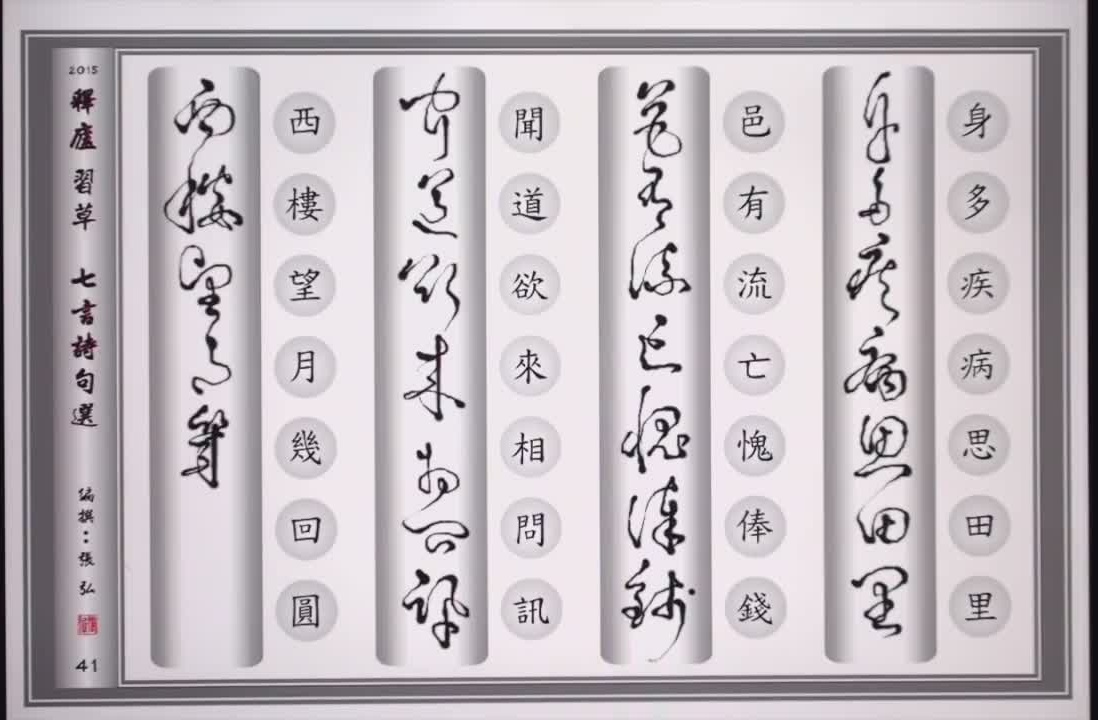 身多疾病思田里
身多疾病思田里
邑有流亡愧俸錢
邑有流亡愧俸錢
聞道欲來相問訊
聞道欲來相問訊
西樓望月幾回圓
西樓望月幾
2015 釋廬習草 七言詩句選 編撰：張弘 41